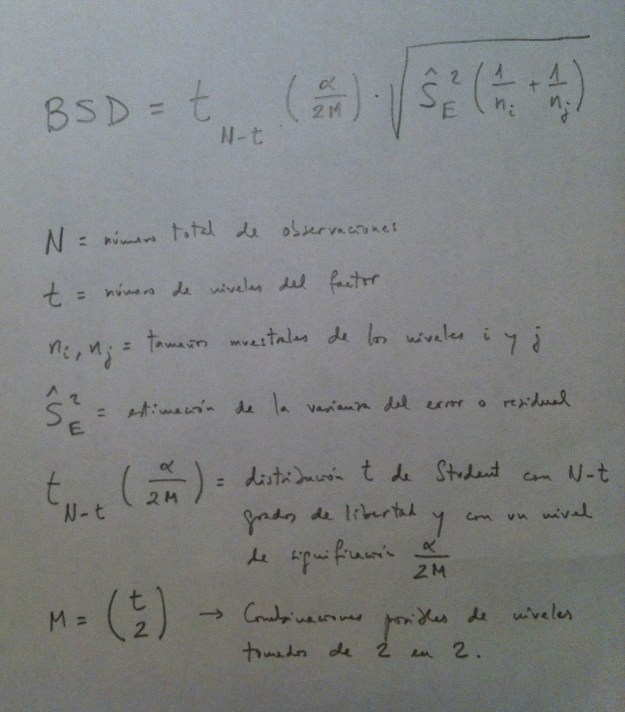 BSD = t_{N-t} (α/2M) · √(Ŝ_E² (1/n_i + 1/n_j))
N = número total de observaciones
t = número de niveles del factor
n_i, n_j = tamaños muestrales de los niveles i y j
Ŝ_E² = estimación de la varianza del error o residual
t_{N-t} (α/2M) = distribución t de Student con N-t
grados de libertad y con un nivel
de significación α/2M
M = (t 2) → Combinaciones posibles de niveles
tomados de 2 en 2.